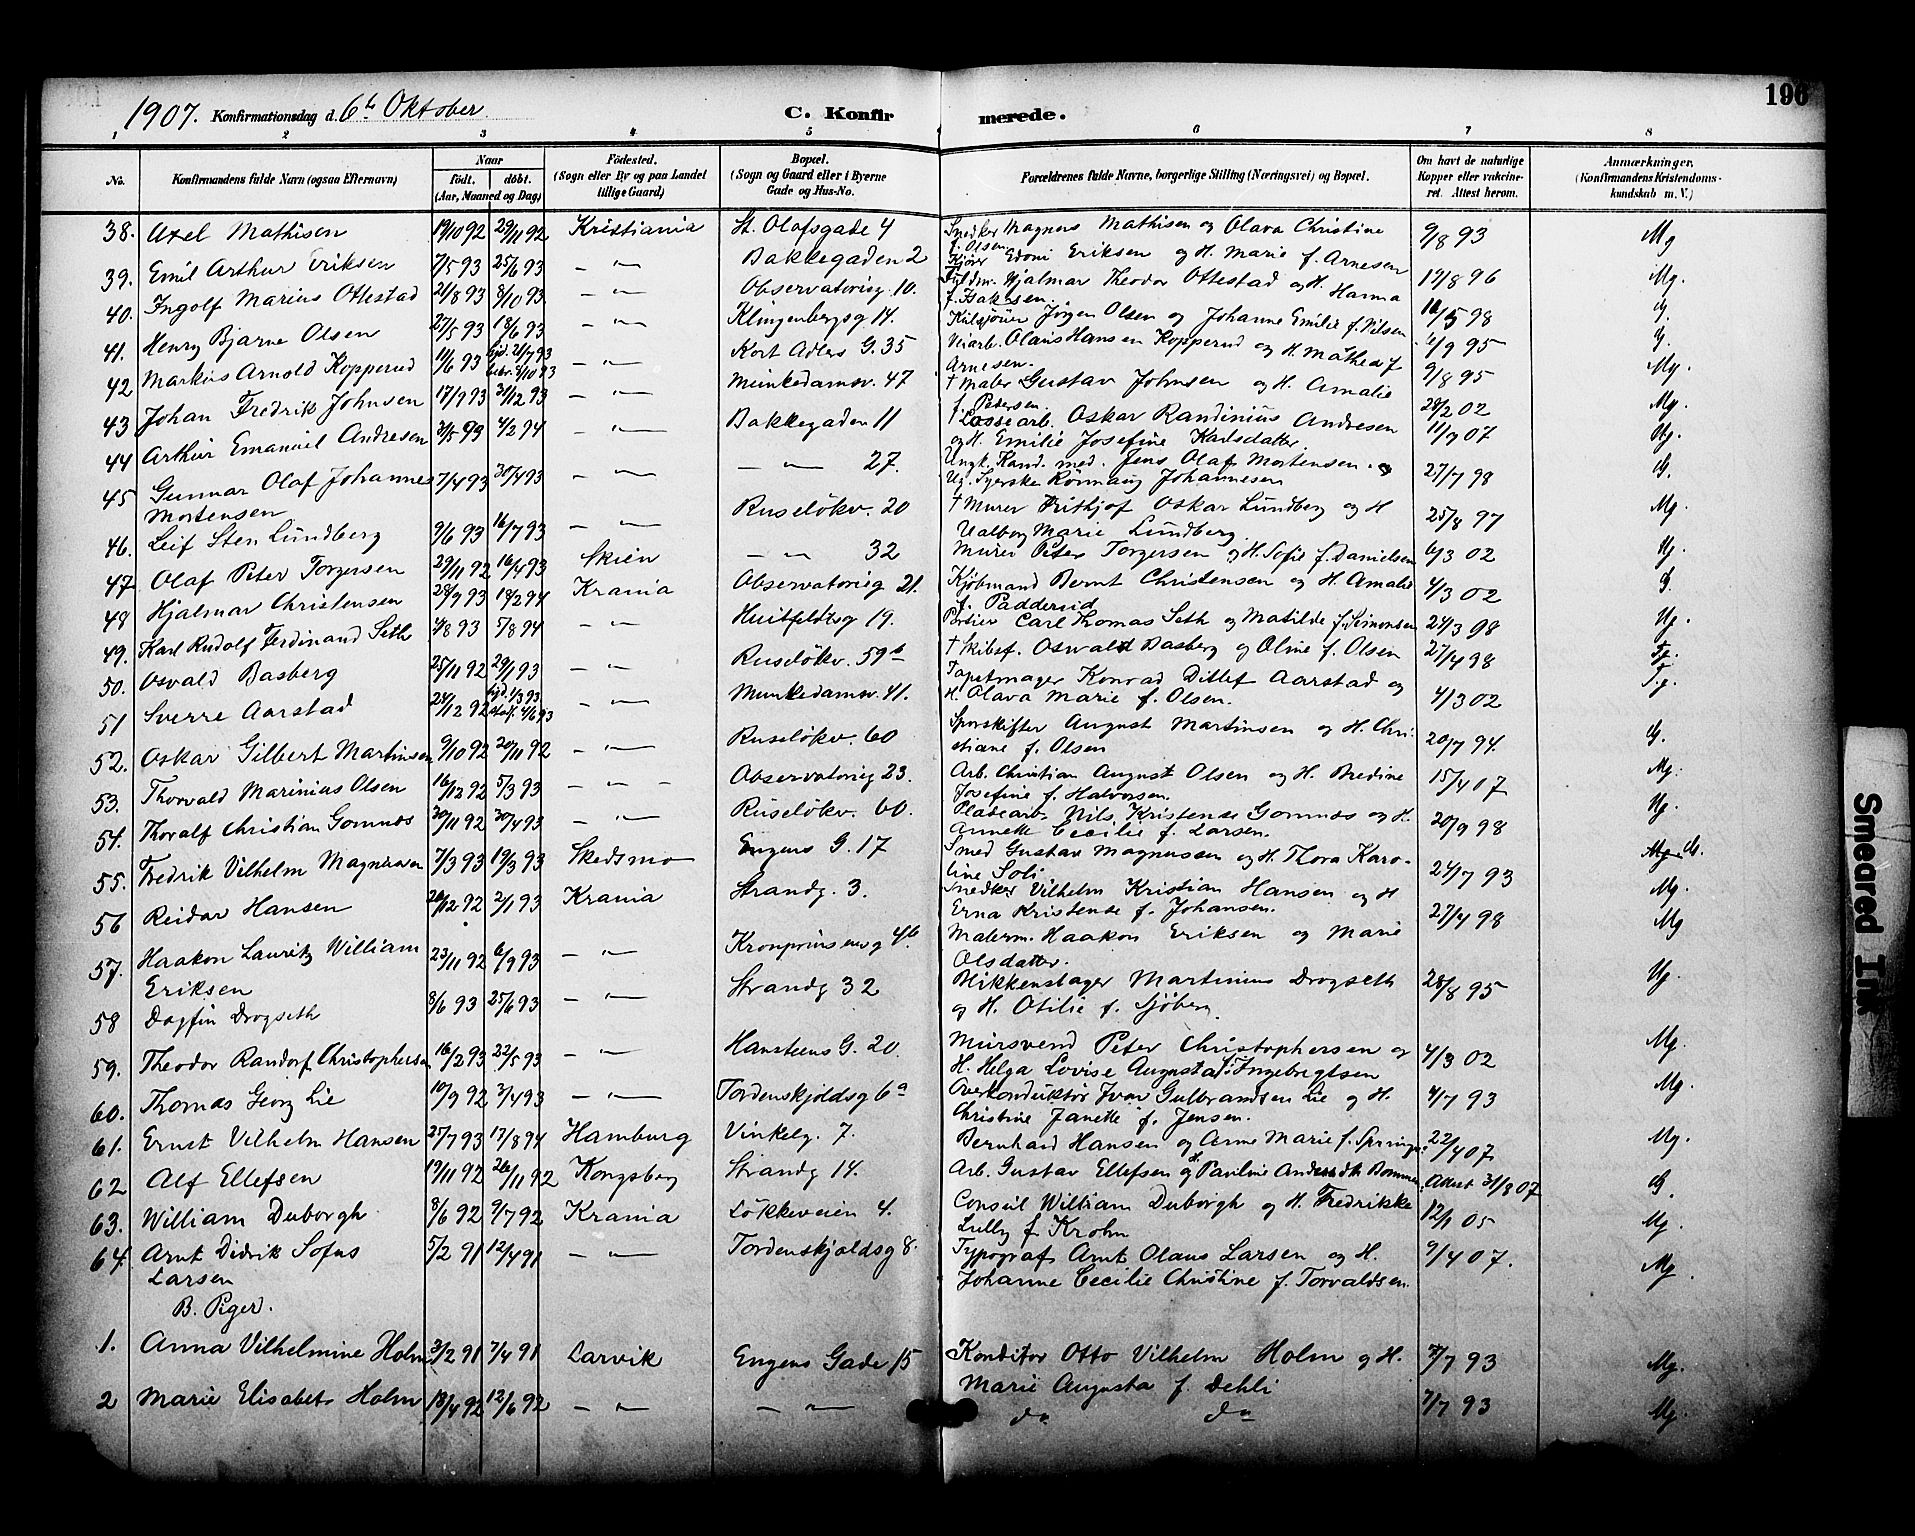 196
1907. Konfirmationsdag d. 6te Oktober C. Konfirmerede.
1 2 3 4 5 6 7 8
No. Konfirmandens fulde Navn (ogsaa Efternavn) Naar födt. döbt. (Aar, Maaned og Dag) Födested. (Sogn eller By og paa Landet tillige Gaard) Bopæl. (Sogn og Gaard eller i Byerne Gade og Hus-No. Forældrenes fulde Navne, borgerlige Stilling (Næringsvei) og Bopæl. Om havt de naturlige Kopper eller vakcineret. Attest herom. Anmærkninger, (Konfirmandens Kristendomskundskab m. V.)
38. Axel Mathisen 19/10 92 29/11 92 Kristiania St. Olafsgade 4 Snedker Magnus Mathisen og Olava Christine f. Olsen 9/8 93 Mg
39. Emil Arthur Eriksen 7/5 93 25/6 93 — " — Bakkegaden 2 Kjører Edoni Eriksen og H. Marie f. Arnesen 19/8 96 Mg.
40. Ingolf Marius Ottestad 21/8 93 8/10 93 — " — Observatorieg. 10. Fuldm. Hjalmar Theodor Ottestad og H. Hanna f. Isaksen. 98 G.
41. Henry Bjarne Olsen 27/5 93 18/6 93 — " — Klingenbergsg 14. Kulsjouer Jörgen Olsen og Johanne Emilie f. Nilsen 6/9 95 G.
42 Markus Arnold Kopperud 11/6 93 hjd. 21/7 93 — " — Kort Adlers G. 35 Veiarb. Olaus Hansen Kopperud og H. Mathea f Arnesen. 9/8 95 Mg.
43 Johan Fredrik Johnsen 17/9 93 31/12 93 — " — Munkedamsv. 47 † Maler Gustav Johnsen og H. Amalie f. Petersen. 28/2 02 Mg.
44 Arthur Emanuel Andresen 4/2 94 — " — Bakkegaden 11 † Lossearb. Oskar Randinius Andresen og H. Emilie Josefine Karlsdatter 11/9 07 Ug.
45 Gunnar Olaf Johannes Mortensen 7/4 93 30/4 93 — " — — " — 27. Ungk. Kand. med. Jens Olaf Mortensen og Ug. Syerske Rönnaug Johannesen 27/7 98 G.
46. Leif Sten Lundberg 9/6 93 16/7 93 — " — Ruselökv. 20 † Murer Frithjof Oskar Lundberg og H Valborg Marie Lundberg. 25/8 97 Mg.
47 Olaf Peter Torgersen 29/11 92 16/4 93 Skien — " — 32 Murer Peter Torgersen og H. Sofie f. Danielsen 6/3 02 Ug.
48 Hjalmar Christensen 28/9 93 18/2 94 Krania Observatorieg 21. Kjöbmand Bernt Christensen og H. Amalie f. Paddersrud 4/3 02 G.
49. Karl Rudolf Ferdinand Seth 4/8 93 5/8 94 — " — Huitfeldtsg 19. Portier Carl Thomas Seth og Matilde f. Simonsen 24/3 98 Ug.
50. Osvald Basberg 25/11 92 29/1 93 — " — Ruselökv. 59 b † Skibsf. Oswald Basberg og Oline f. Olsen 27/4 98 Tg.
51 Sverre Aarstad 24/12 92 hjd. 1/3 93 4/6 93 — " — Munkedamsv. 41. Tapetmager Konrad Ditlef Aarstad og H. Olava Marie f. Olsen. 4/3 02 T.g.
52. Oskar Gilbert Martinsen 9/10 92 20/11 92 — " — Ruselökv. 60 Sporskifter August Martinsen og H. Christiane f. Olsen 20/7 94. G.
53. Thorvald Marinius Olsen 16/12 92 5/3 93 — " — Observatorieg 23. Arb. Christian August Olsen og H. Bredine Josefine f. Halvorsen. 15/4 07 Mg.
54. Thoralf Christian Gomnæs 30/11 92 30/4 93 — " — Ruselökv. 60. Pladearb. Nils Kristense Gomnæs og H. Annette Cecilie f. Larsen. 20/9 98 Ug.
55. Fredrik Vilhelm Magnussen 7/3 93 19/3 93 Skedsmo Engens G. 17 Smed Gustav Magnussen og H. Thora Karoline Soli 24/7 93 Mg. G.
56 Reidar Hansen 26/12 92 2/1 93 Krania Strandg. 3. Snedker Vilhelm Kristian Hansen og H Erna Kristense f. Johansen. 27/4 98 Mg.
57. Haakon Lauritz William Eriksen 23/11 92 6/9 93 — " — Kronprinsensg 4b. Malerm. Haakon Eriksen og Marie Olsdatter. Mg
58 Dagfin Drogseth 8/6 93 25/6 93 — " — Strandg 32 Blikkenslager Martinius Drogseth og H. Otilie f. Sjöberg. 28/8 95 Ug.
59. Theodor Randorf Christophersen 16/2 93 22/5 93 — " — Hansteens G. 20. Mursvend Peter Christophersen og H. Helga Lovise Augusta f. Ingebrigtsen 4/3 02 Mg.
60. Thomas Georg Lie 10/9 92 3/4 93 — " — Tordenskjoldsg 6a Overkonduktör Ivar Gulbrandsen Lie og H. Christine Janette f. Jensen. 4/7 93 Mg.
61. Ernst Vilhelm Hansen 25/7 93 17/8 94 Hamburg Vinkelg. 7. Bernhard Hansen og Anne Marie f. 22/4 07 Mg.
62 Alf Ellefsen 19/11 92 26/11 92 Kongsberg Strandg 14. Arb. Gustav Ellefsen og H. Pauline Attest 31/8 07 G.
63. William Duborgh 8/6 92 9/7 92 Krania Lökkeveien 4. Consul William Duborgh og H. Fredrikke Lully f. Krohn 12/1 05 Mg.
64. Arnt Didrik Sofus Larsen 5/2 91 12/4 91 — " — Tordenskjoldsg 8. Typograf Arnt Olaus Larsen og H. Johanne Cecilie Christine f. Torvaldsen. 9/4 07. Mg.
B. Piger.
1. Anna Vilhelmine Holm 3/2 91 7/4 91 Larvik Engens Gade 15 Konditor Otto Vilhelm Holm og H. Marie Augusta f. Dehli 7/7 93 Mg.
2 Marie Elisabet Holm 18/4 92 12/6 92 — " — — " — do do 7/7 93 Mg.
Smeared Ink